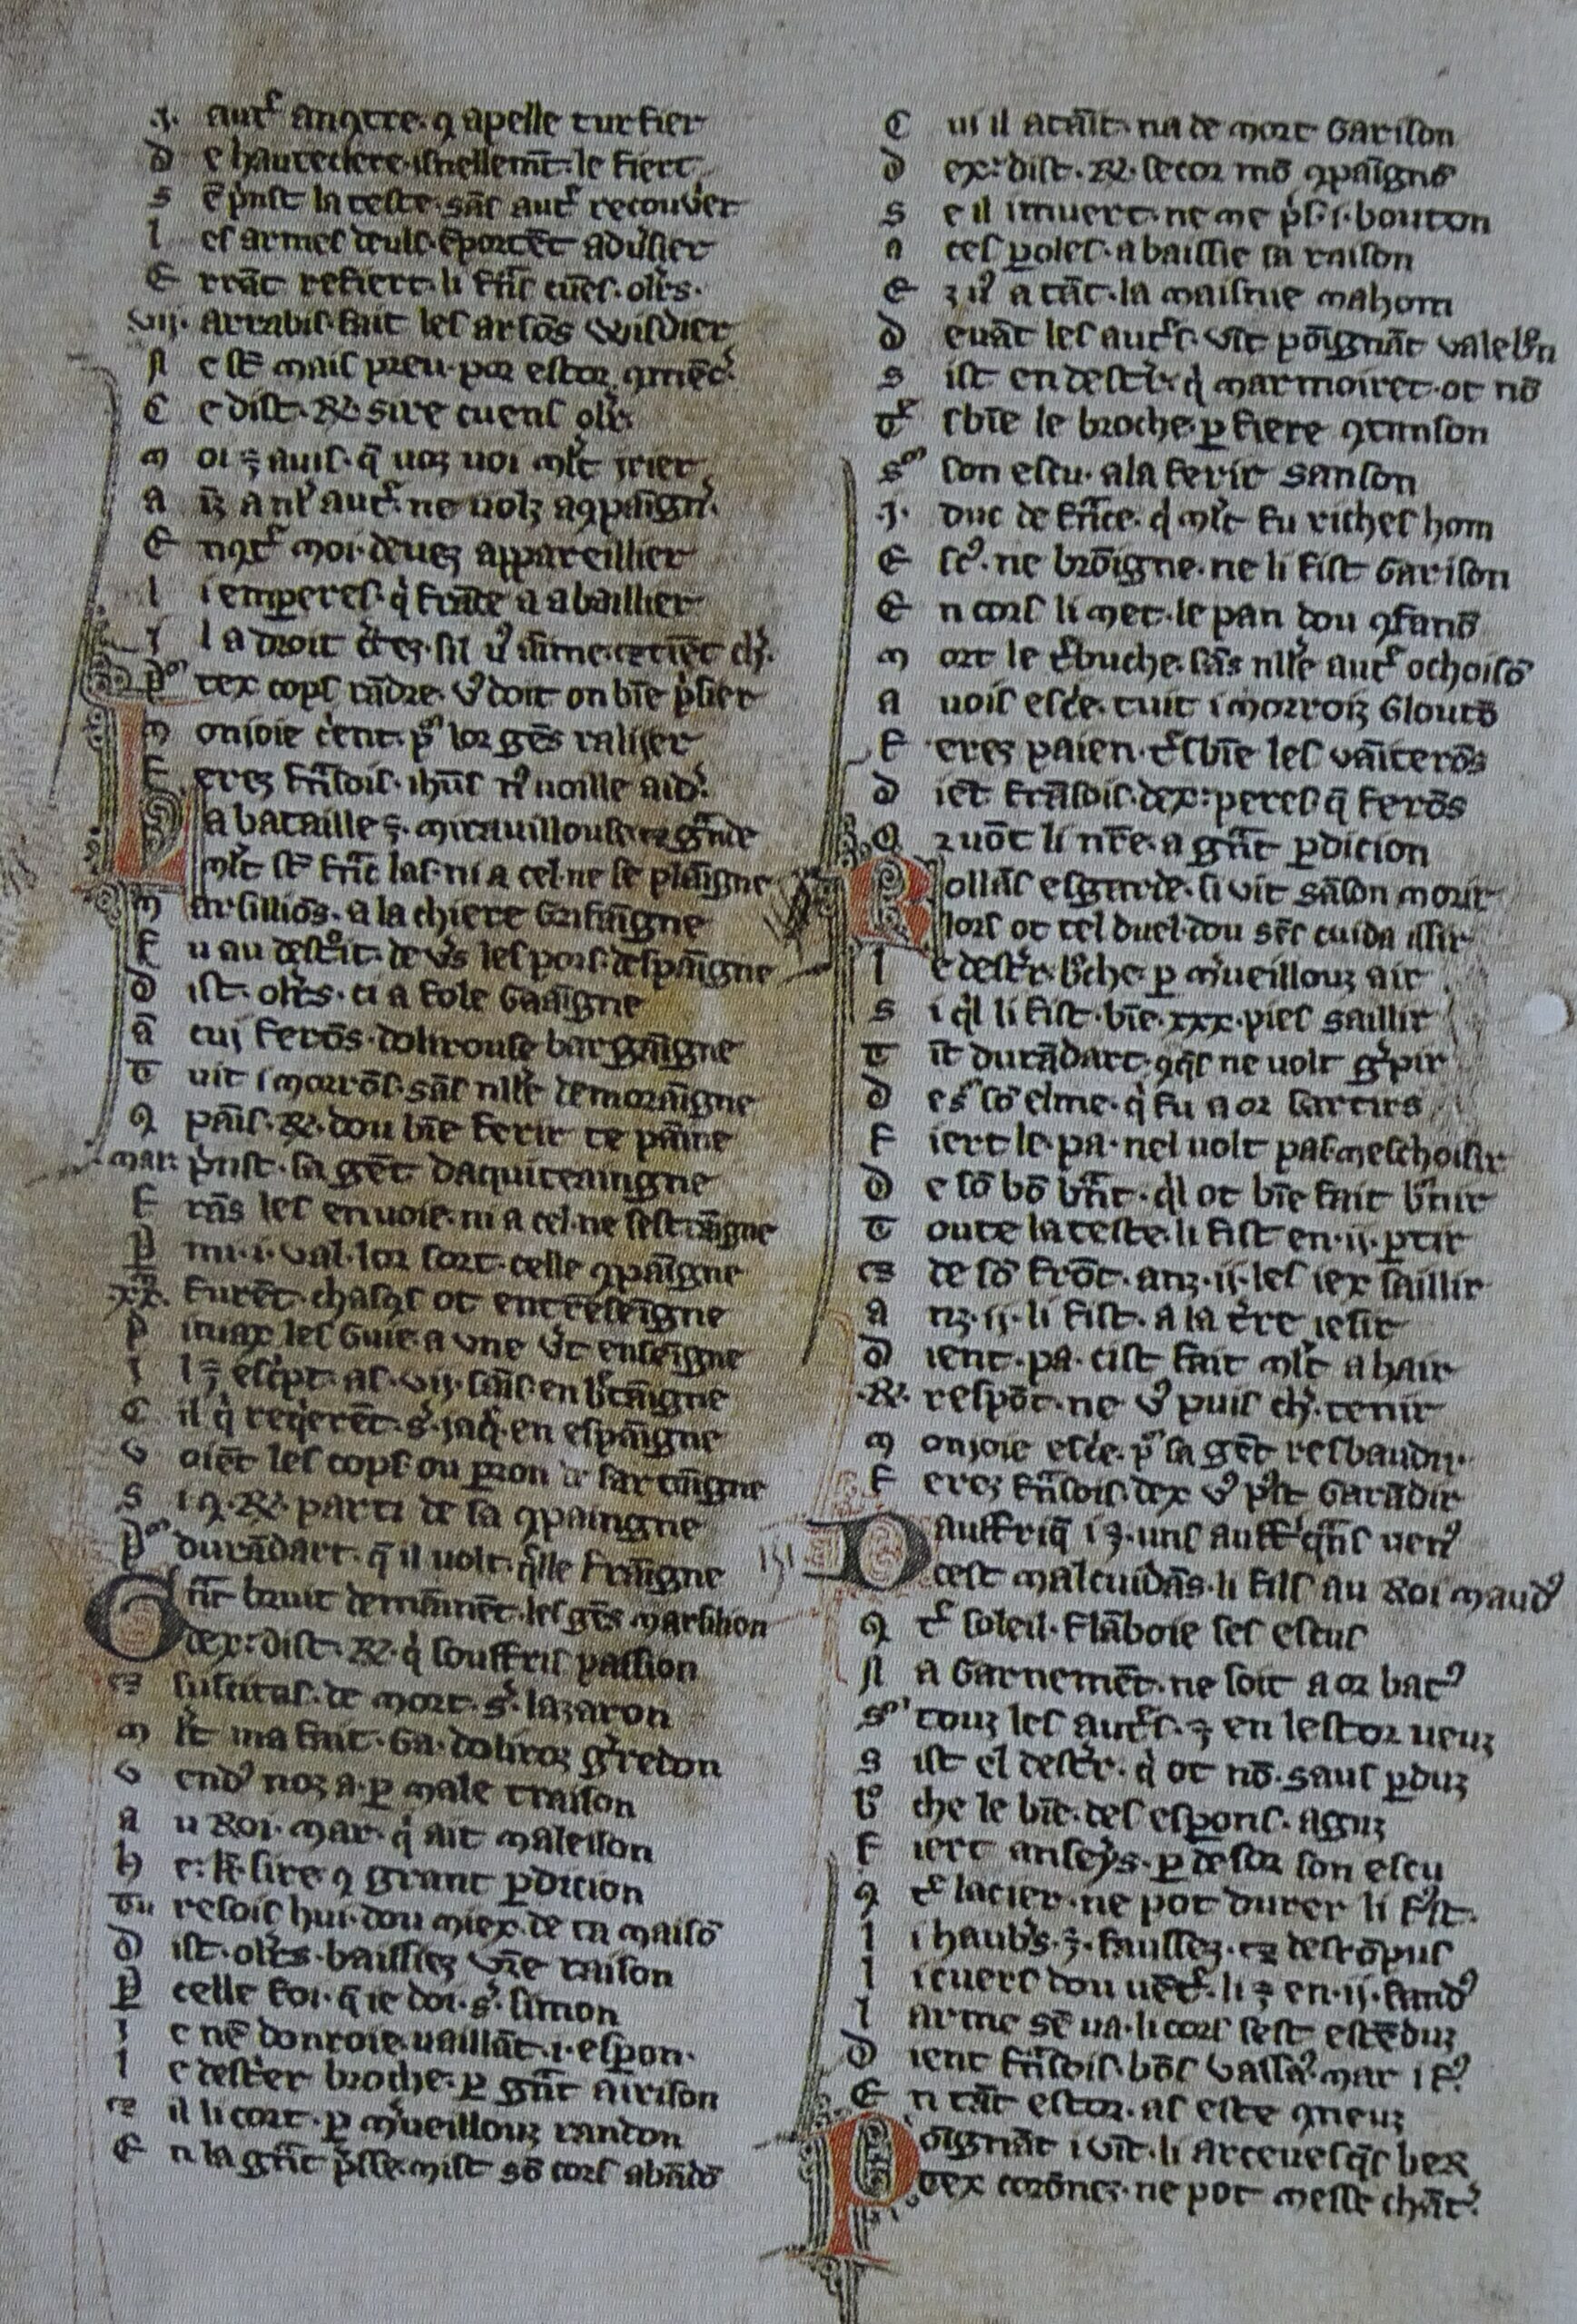 .j. autᷣ anqtre. q apelle turfier
d e hauteclere isnellemt̄. le fiert
s ē pͥnst la teste. sās autᷣ recouver
l es armes deuls. ēportēt aduͥsier
E rrāt refiert. li frāc cuēs. olrͥs.
vij. arrabis. fait les arsōs wisdier
N e st̄ mais preu. por estor. qmēcͥ.
C e dist. R. sire cuens olrͥ.
m oi ē avis. q̄ uoz uoi ml̄t irier
a uͥz a nlͥ autᷣ. ne uolz aqpaīgnͥ.
E nqtᷣ moi. deuez appareillier
l i emperes. qͥ frāce a a baillier
I l a droit
p͞ tex cops rādre. vꝰ doit on biē pͥsier
m onioie cͥent. p͞ lor gēs ralijer
F erez frāsois. ihūs nꝰ uoille aidͥ.
L a bataille ē. mirauillouse ꝫ grāde
ml̄t st̄ frāc las. ni a cel. ne se plaīgne
m arsilliōs. a la chiere grifaīgne
F u au destᷣoit. de vͥs les pors. despaīgne
d ist. olrͥs. ci a fole gaaīgne
ā cui ferōs. dolirouse bargaīgne
T uit i morrōs. sās nlle demoraīgne
q paīs. R. dou biē ferir te paīne
mar. pͥnst. sa gēt daquiteaingne
F rās les enuoie. ni a cel. ne sestraīgne
p mi. i. val. lor sort. celle qpaīgne
xx. furēt. chascꝰs ot entreseīgne
p iniax les guie. a une vͥt enseīgne
I l ē escͥpt. as. vij. sāis en bͥtaīgne
C il qͥ reqͥerēt. sͥ. jaqͥ. en espaīgne
v oiēt les cops ou pron de sartaīgne
S i q. R. parti de sa qpaingne
p͞ durādart. q̄ il uolt. qͥlle fraīgne
G rāt bruit demainnēt. les gēs marsilion
dex. dist. R. qͥ souffris passion
ꝫ suscitas. de mort. sͥ. lazaron
m l̄t ma fait. Ga. doliroz gͥredon
v endꝰ noz a. p male traison
a u Roi. mar. qͥ ait maleison
h e. k. sire q grant pdicion
Tu resois hui. dou miex. de ta maisō
d ist. olrͥs. baissiez vr̄e raison
p celle foi. q̄ ie doi. sͥ. simon
I e nē donroie. vaillāt. i. espron.
l e destᷣer broche. p grāt airison
ꝫ il li cort. p mͥueillouz randon
E n la grāt pͥsse. mist sō cors abādō
C ui il ataīt. na de mort garison
d ex. dist. R. secor mō qpaīgnō
s e il i muert. ne me pͥs. i. bouton
a ces poles. a baissie sa raison
E z uꝰ a tāt. la maisnie mahom
d euāt les autᷣs. vīt poīgnāt valebrūn
s ist en destᷣr. qͥ marmoiret. ot nō
tᷣ sbiē le broche. p fiere qtanson
s͞ son escu. ala ferir sanson
.j. duc de frāce. qͥ ml̄t fu riches hom
E scꝰ. ne broīgne. ne li fist garison
E n cors li met. le pan dou qfanō
m ort le tᷣbuche. sās nlle autᷣ ochoisō
a uois escͥe. tuit i morroiz gloutō
F erez paien. tᷣsbiē les vaīterōs
d iēt frāsois. dex. peres q̄ ferōs
Q 2 uōt li nr̄e. a grāt pdicion
R ollās esgarde. si vit sāson morir
lors ot tel duel. dou sēs cuida issir
l e destᷣr. bͦche. p mͥueillouz air
s i qͥl li fist. biē. xxx. pies saillir
T īt durādart. qqͥs ne uolt gͥpir
d es͞ sō elme. qͥ fu a or sartirs
F iert le. pa. nel uolt pas meschoisir
d e sō bō brāt. qͥl ot biē fait bͥnir
T oute la teste. li fist en. ij. ptir
ꝫ de sō frōt. anz. ij. les iex saillir
a nz. ij. li fist. a la tͥre iesir
d ient. pa. cist fait ml̄t a hair
.R. respōt. ne vꝰ puis chͥ. tenir
m onjoie escͥe. p͞ sa gēt resbaudir.
F erez frāsois. dex vꝰ pͥst garādir
D auffriq̄ i ē. uns auffͥqͣns uenꝰ
cest malcuidās. li fils au Roi maudꝰ
q tᷣ soleil. flāboie ses escus
N a garnemēt. ne soit a or batꝰ
s͞ touz les autᷣs. ē en lestor ueuz
s ist el destͥr. qͥ ot nō. saus pduz
bͦ che le biē. des esprons. aguz
F iert anseys. p desor son escu
q tᷣ lacier. ne pot durer li fꝰst.
l i haubͥs. ē. faussez. ꝫ destōpus
l i cuers dou uētᷣ. li ē en. ij. fandꝰ
l arme sē ua. li cors sest estēduz
d ient frāsois. bōs vassaͥ. mar i fꝰ.
E n tāt estor. as este qneuz
P oīgnāt i vīt. li arceuesqͥs ber
tex corōnez. ne pot messe chātͥ.